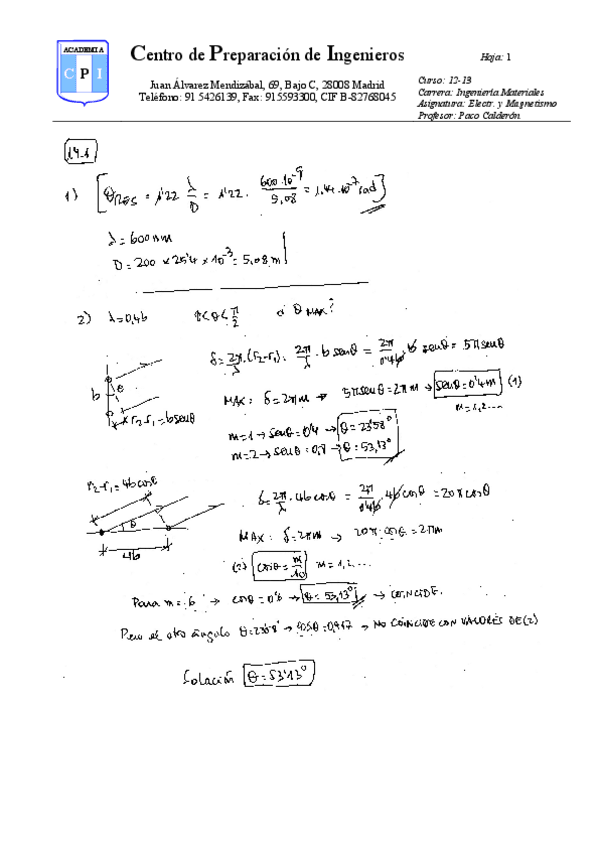 ACADEMIA
CPI
Centro de Preparación de Ingenieros
Hoja: 1
Juan Álvarez Mendizábal, 69, Bajo C, 28008 Madrid
Teléfono: 91 5426139, Fax: 915593300, CIF B-82768045
Curso: 12-13
Carrera: Ingeniería Materiales
Asignatura: Electr. y Magnetismo
Profesor: Paco Calderón
14.1
1) [θRES = 1'22 λ/D = 1'22 · 600·10^-9/5,08 = 1,44·10^-7 rad]
λ = 600 nm
D = 200 × 25'4 × 10^-3 = 5,08 m
2) λ = 0,4b < θ < π/2 ¿ θ MAX?
δ = 2π/λ · (r2-r1) = 2π/λ · b senθ = 2π/0'4b · b senθ = 5π senθ
b θ
r2-r1 = b senθ
MAX: δ = 2πm → 5π senθ = 2πm → senθ = 0'4m (1)
m = 1,2...
m=1 → senθ = 0'4 → θ = 23'58°
m=2 → senθ = 0,8 → θ = 53,13°
r2-r1 = 4b cosθ
θ
4b
δ = 2π/λ · 4b cosθ = 2π/0'4b · 4b cosθ = 20π cosθ
MAX: δ = 2πm → 20π cosθ = 2πm
(2) cosθ = m/10 m = 1,2...
Para m = 6 → cosθ = 0'6 → θ = 53,13° → COINCIDE.
Pero el otro ángulo θ = 23'58° → cosθ = 0,917 → NO COINCIDE CON VALORES DE (2)
Solación θ = 53'13°